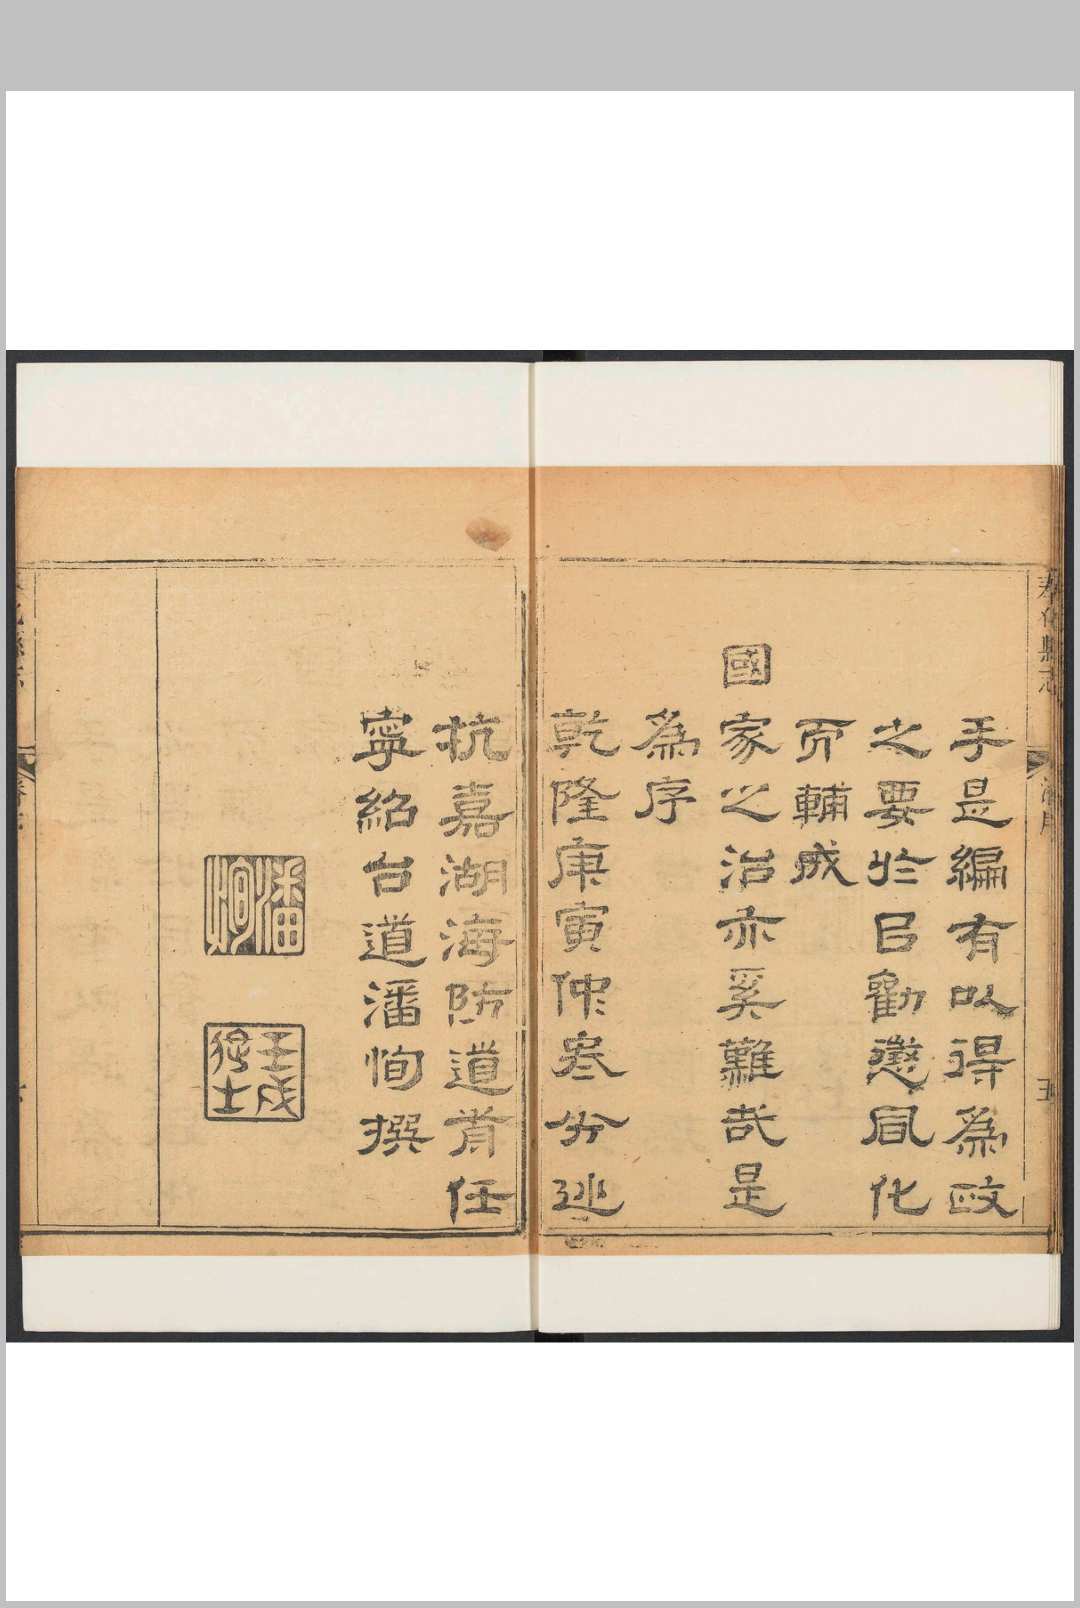 奉化縣志
潘序
五
手是編有以得為政
之要於㠯勸懲風化
而輔成
國家之治亦奚難哉是
為序
乾隆庚寅仲寒分巡
杭嘉湖海防道前任
寧紹台道潘恂撰
潘恂
壬戌進士